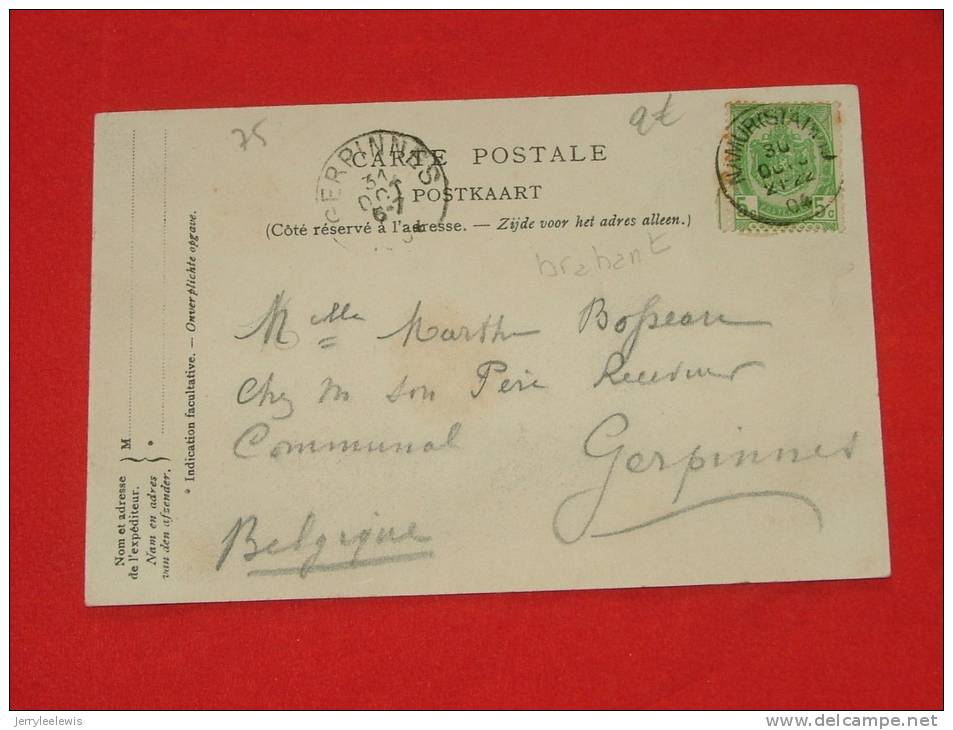 75
9€
CARTE POSTALE
POSTKAART
(Côté réservé à l'adresse. — Zijde voor het adres alleen.)
GERPINNES
31
OCT
6-7
NAMUR (STATION)
30
OCT
21-22
04
5c 5c
brabant
Mlle Marthe
Chez M son Père Receveur
Communal Gerpinnes
Belgique
* Indication facultative. — Onverplichte opgave.
Nom et adresse
de l'expéditeur.
Nam en adres
van den afzender.
M
*
jerryleelewis
delcampe.net